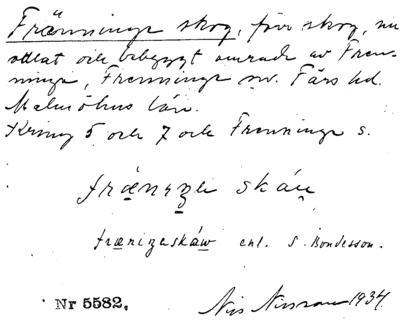 Fränninge skog, förr skog, nu
odlat och bebyggt område av Fren-
ninge, Frenninge sn. Färs hd.
Malmöhus län.
Kring 5 och 7 och Frenninge s.
skáu
enl. S. Bondesson.
Nr 5582.
Nils Nilsson 1934.